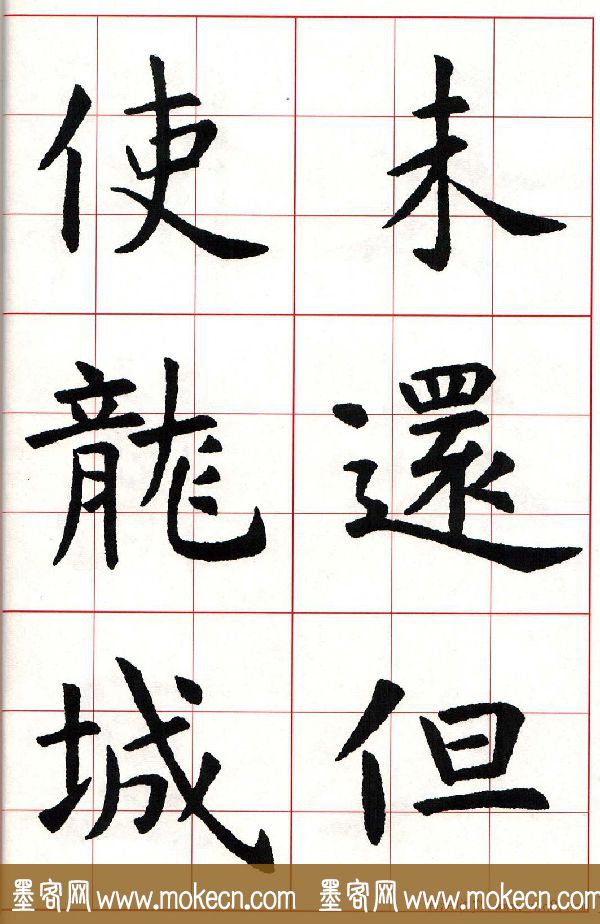 未還但
使龍城
墨客网 www.mokecn.com 墨客网 www.mokecn.com